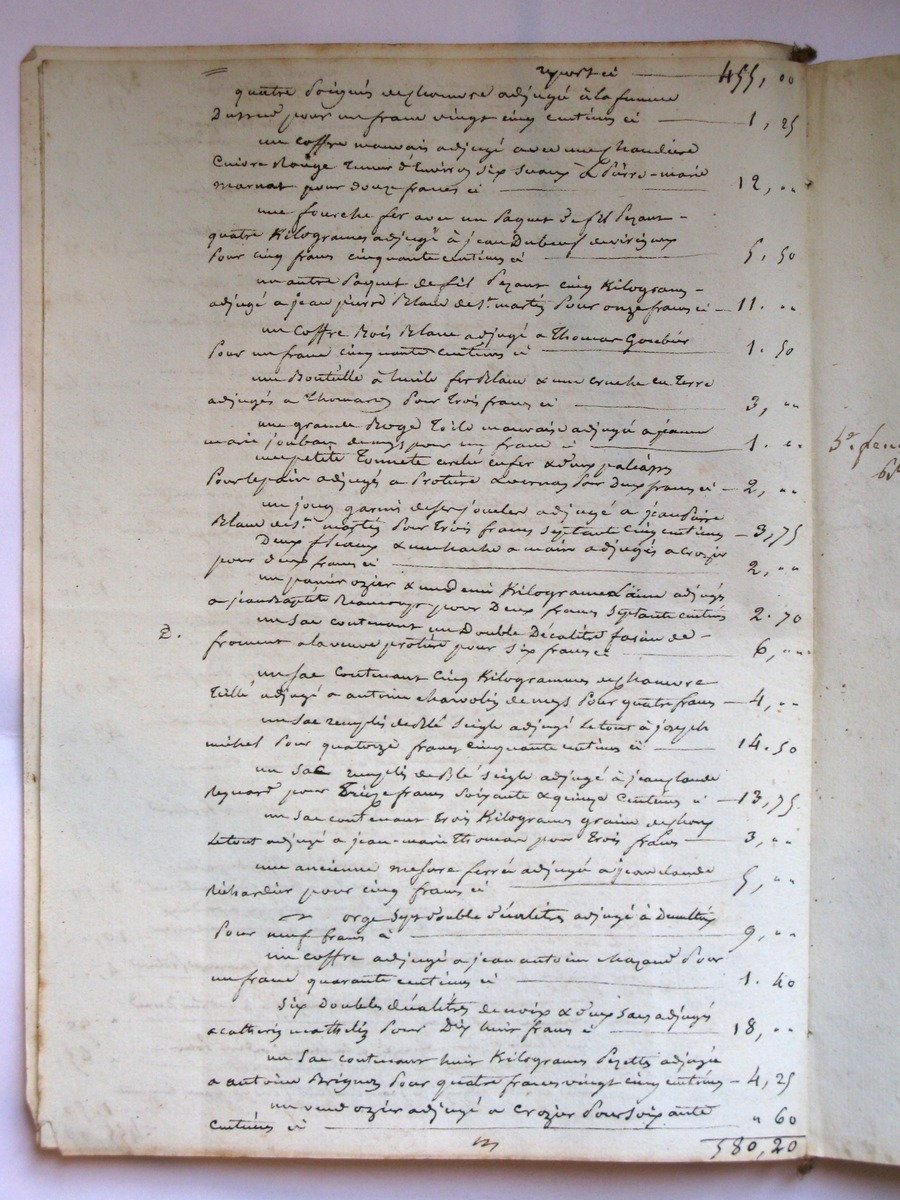 report ci — 455, 00
quatre poignés de chanvre adjugé à la femme
pour un franc vingt cinq centimes ci — 1, 25
un coffre mauvais adjugé avec une chaudiere
Cuivre Rouge tenant d'Environ six seaux a Pierre-marie
marnat pour douze francs ci — 12, ..
une fourche fer avec un Paquet de fil Pezant -
quatre Kilogrames adjugé à jean Dubeuf
Pour cinq francs cinquante centimes ci — 5, 50
un autre Paquet de fil Pezant cinq Kilogrames -
adjugé a jean pierre Blanc de St. martin Pour onze francs ci — 11. ..
un coffre Bois Blanc adjugé a Thomas Goubier
Pour un franc cinquante centimes ci — 1. 50
une Bouteille à huile fer Blanc & une cruche en terre
adjugés a Thomas Pour trois francs ci — 3, ..
une grande toile mauvaise adjugé a jeanne
marie pour un franc ci — 1. ..
une petite cerclé en fer & deux paliasses
Pour le pain adjugés a Protière Pour Deux francs ci — 2, ..
un joug garni de ses adjugé a jean Pierre
Blanc de St. martin Pour trois francs septante cinq centimes — 3,75
Deux fleaux & une hache a main adjugés a Crozier
pour deux francs ci — 2, ..
un panier ozier & un demi Kilograme Laine adjugés
a jean Baptiste pour Deux francs septante centimes 2. 70
2. un sac contenant un Double Décalitre farine de -
froment a la veuve protière pour six francs ci — 6, ..
un sac Contenant Cinq Kilogrammes de chanvre
Teillé adjugé a antoine de neys Pour quatre francs — 4, ..
un sac remplis de Blé seigle adjugé le tout à joseph
michel Pour quatorze francs cinquante centimes ci — 14. 50
un sac remplis de Blé seigle adjugé à jean claude
pour treize francs soixante & quinze Centimes ci — 13, 75.
un sac contenant trois Kilogrames graine de
le tout adjugé a jean-marie Thomas pour trois francs — 3, ..
une ancienne mesure ferré adjugé a jean claude
Richardier pour cinq francs ci — 5, ..
orge sept double décalitres adjugé à
Pour neuf francs ci — 9, ..
un coffre adjugé a jean antoine chazaud Pour
un franc quarante centimes ci — 1. 40
six Doubles décalitres de noix & deux sacs adjugés
a catherine Pour Dix huit francs ci — 18, ..
un sac contenant huit Kilogrames Pezette adjugé
a antoine Pour quatre francs vingt cinq centimes — 4, 25
un ozier adjugé a Crozier Pour soixante
centimes ci — " 60
580, 20